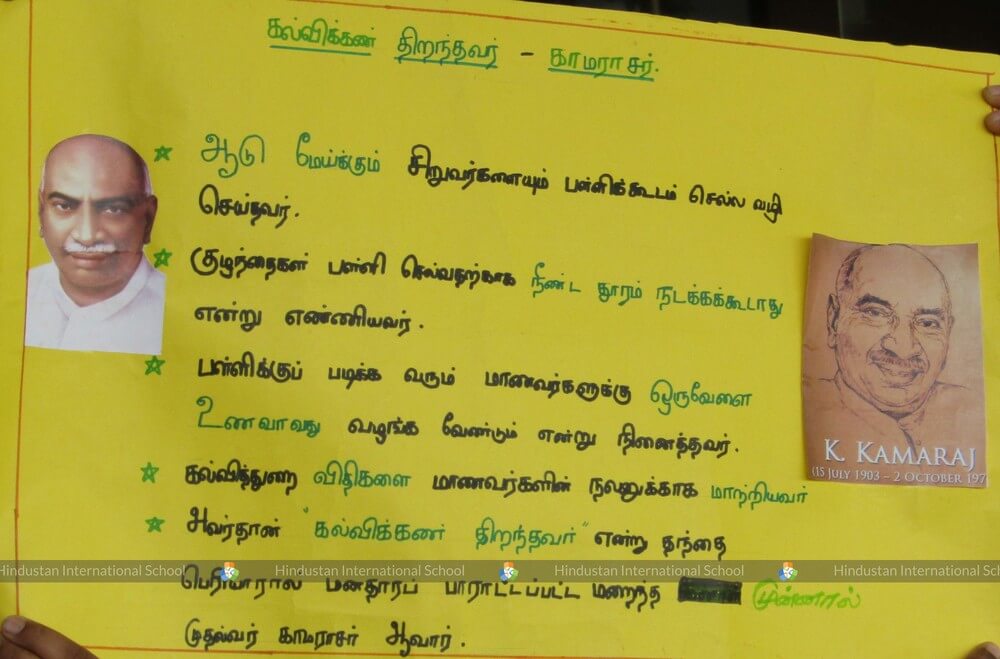 கல்விக்கண் திறந்தவர் - காமராசர்.
ஆடு மேய்க்கும் சிறுவர்களையும் பள்ளிக்கூடம் செல்ல வழி
செய்தவர்.
குழந்தைகள் பள்ளி செல்வதற்காக நீண்ட தூரம் நடக்கக்கூடாது
என்று எண்ணியவர்.
பள்ளிக்குப் படிக்க வரும் மாணவர்களுக்கு ஒருவேளை
உணவாவது வழங்க வேண்டும் என்று நினைத்தவர்.
கல்வித்துறை விதிகளை மாணவர்களின் நலனுக்காக மாற்றியவர்
அவர்தான் "கல்விக்கண் திறந்தவர்" என்று தந்தை
பெரியாரால் மனதாரப் பாராட்டப்பட்ட மறைந்த முன்னால்
முதல்வர் காமராசர் ஆவார்.
K. KAMARAJ
(15 JULY 1903 – 2 OCTOBER 197
Hindustan International School Hindustan International School Hindustan International School Hindustan International School